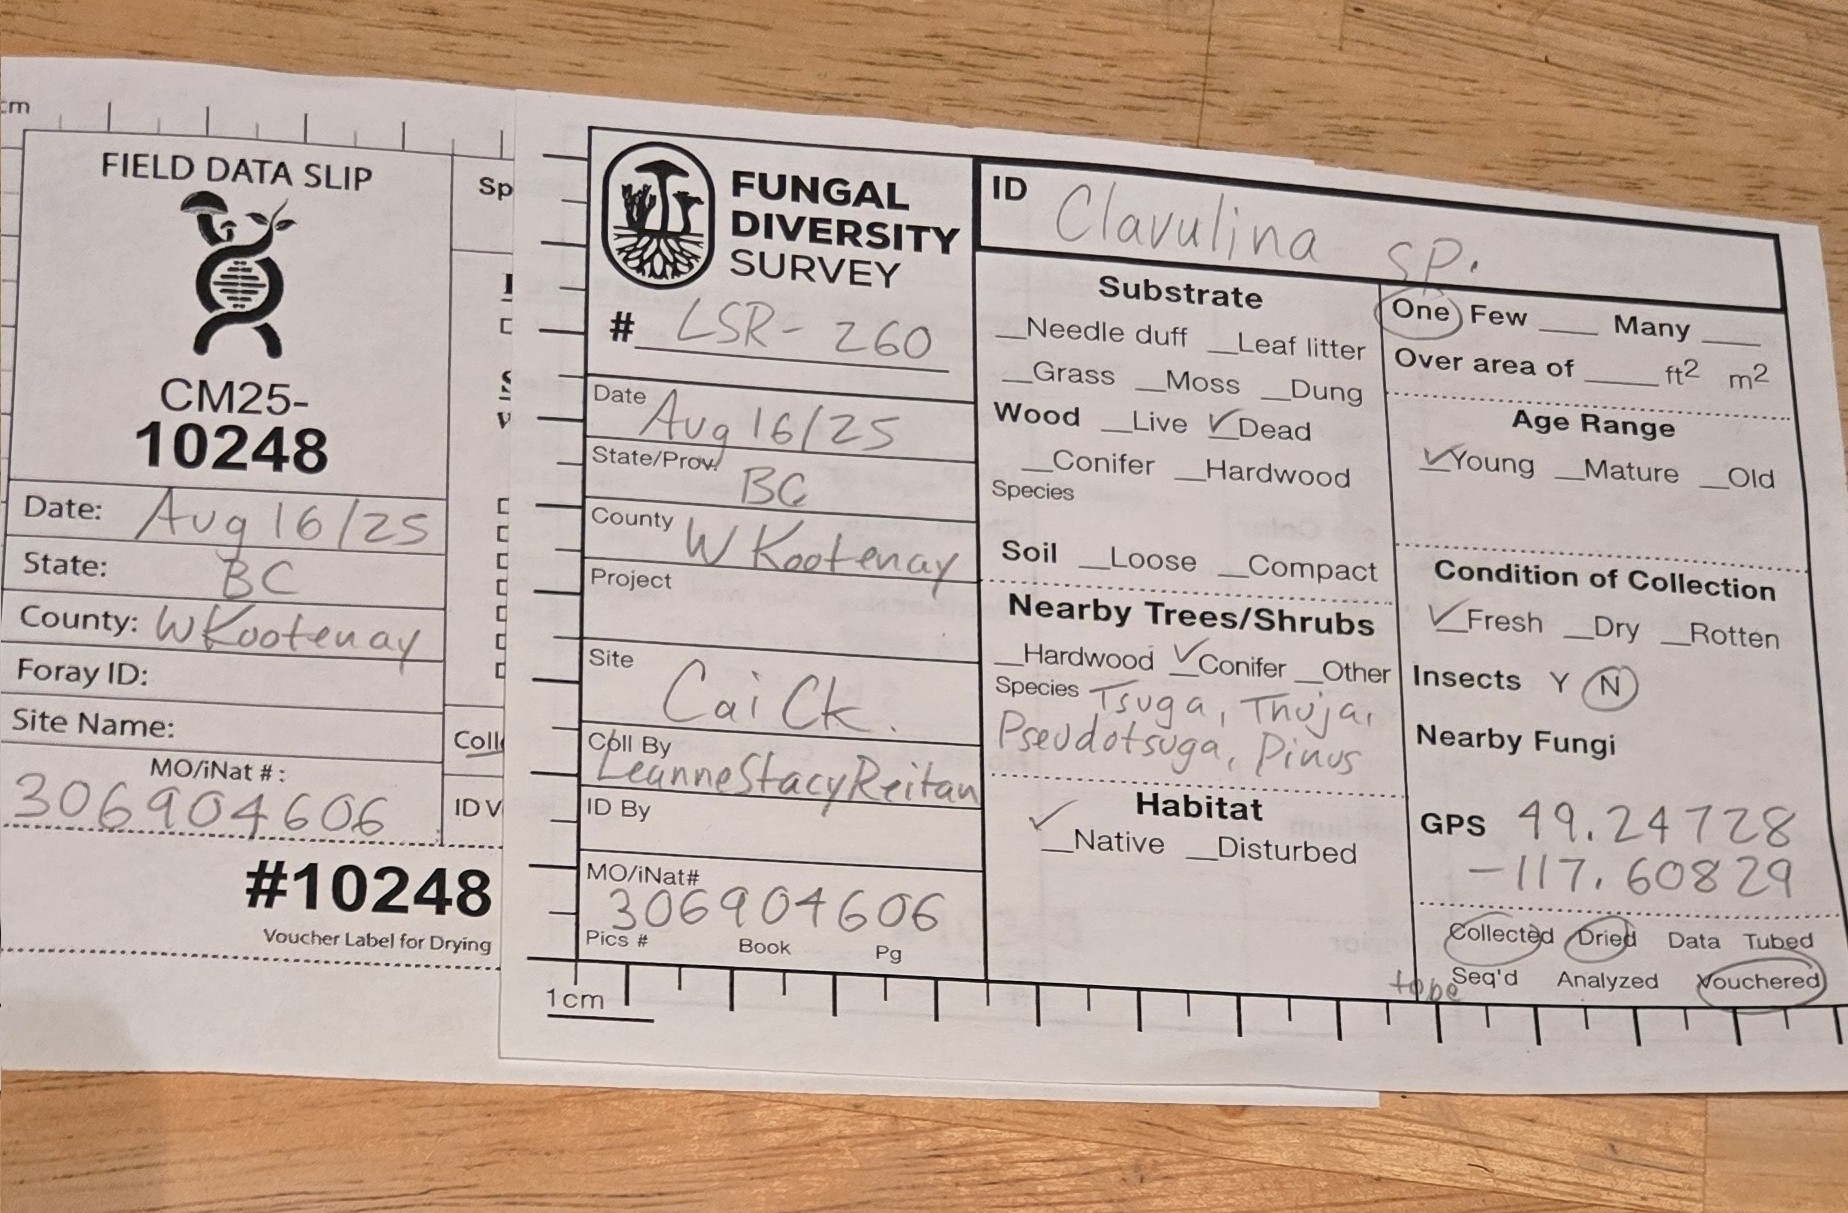 cm
FIELD DATA SLIP
CM25-
10248
Date: Aug 16/25
State: BC
County: W Kootenay
Foray ID:
Site Name:
MO/iNat #:
306904606
#10248
Voucher Label for Drying
Sp
Coll
ID V
FUNGAL
DIVERSITY
SURVEY
# LSR-260
Date Aug 16/25
State/Prov. BC
County W Kootenay
Project
Site Cai Ck.
Coll By LeanneStacyReitan
ID By
MO/iNat#
306904606
Pics # Book Pg
1cm
ID Clavulina sp.
Substrate
__Needle duff __Leaf litter
__Grass __Moss __Dung
Wood __Live ✓Dead
__Conifer __Hardwood
Species
Soil __Loose __Compact
Nearby Trees/Shrubs
__Hardwood ✓Conifer __Other
Species Tsuga, Thuja,
Pseudotsuga, Pinus
Habitat
✓Native __Disturbed
One Few ____ Many ____
Over area of ____ ft2 m2
Age Range
✓Young __Mature __Old
Condition of Collection
✓Fresh __Dry __Rotten
Insects Y N
Nearby Fungi
GPS 49.24728
-117.60829
Collected Dried Data Tubed
to be Seq'd Analyzed Vouchered